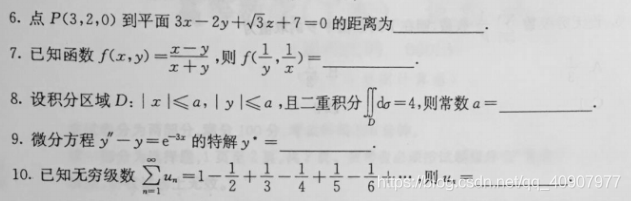 6. 点 P(3,2,0) 到平面 3x-2y+√3z+7=0 的距离为________.
7. 已知函数 f(x,y)=\frac{x-y}{x+y},则 f(\frac{1}{y},\frac{1}{x})=________.
8. 设积分区域 D:|x|≤a,|y|≤a,且二重积分∬_D dσ=4,则常数 a=________.
9. 微分方程 y″-y=e^{-3x} 的特解 y*=________.
10. 已知无穷级数 \sum_{n=1}^{∞} u_n=1-\frac{1}{2}+\frac{1}{3}-\frac{1}{4}+\frac{1}{5}-\frac{1}{6}+⋯,则 u_n=________.
https://blog.csdn.net/qq_40907977